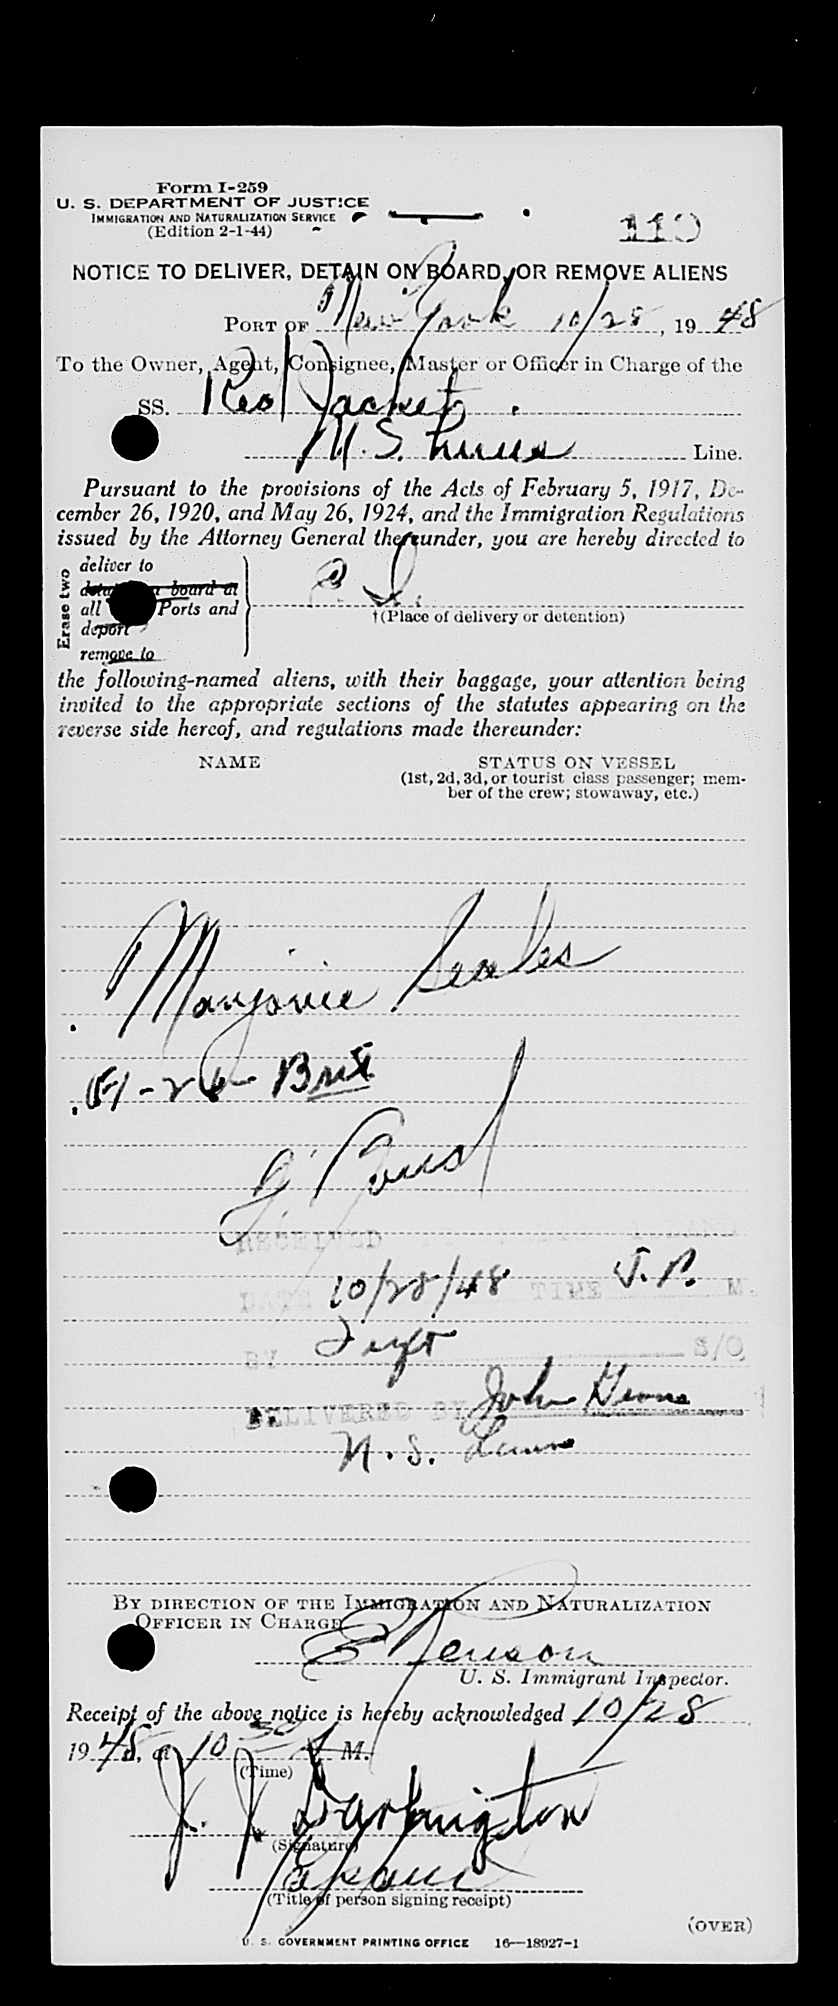 Form I-259
U. S. DEPARTMENT OF JUSTICE
IMMIGRATION AND NATURALIZATION SERVICE
(Edition 2-1-44)
110
NOTICE TO DELIVER, DETAIN ON BOARD, OR REMOVE ALIENS
PORT OF New York 10/28, 19 48
To the Owner, Agent, Consignee, Master or Officer in Charge of the
SS. Red Jacket
Line.
Pursuant to the provisions of the Acts of February 5, 1917, De-
cember 26, 1920, and May 26, 1924, and the Immigration Regulations
issued by the Attorney General thereunder, you are hereby directed to
Erase two
deliver to
on board at
all Ports and
deport
remove to
E. I.
†(Place of delivery or detention)
the following-named aliens, with their baggage, your attention being
invited to the appropriate sections of the statutes appearing on the
reverse side hereof, and regulations made thereunder:
NAME STATUS ON VESSEL
(1st, 2d, 3d, or tourist class passenger; mem-
ber of the crew; stowaway, etc.)
Marjorie Seales
Brit
RECEIVED
10/28/48 TIME J.P. M.
BY S/O
DELIVERED BY John
BY DIRECTION OF THE IMMIGRATION AND NATURALIZATION
OFFICER IN CHARGE
U. S. Immigrant Inspector.
Receipt of the above notice is hereby acknowledged 10/28
19 48, at 10 30 A M.
(Time)
(Signature)
(Title of person signing receipt)
(OVER)
U. S. GOVERNMENT PRINTING OFFICE 16—18927-1